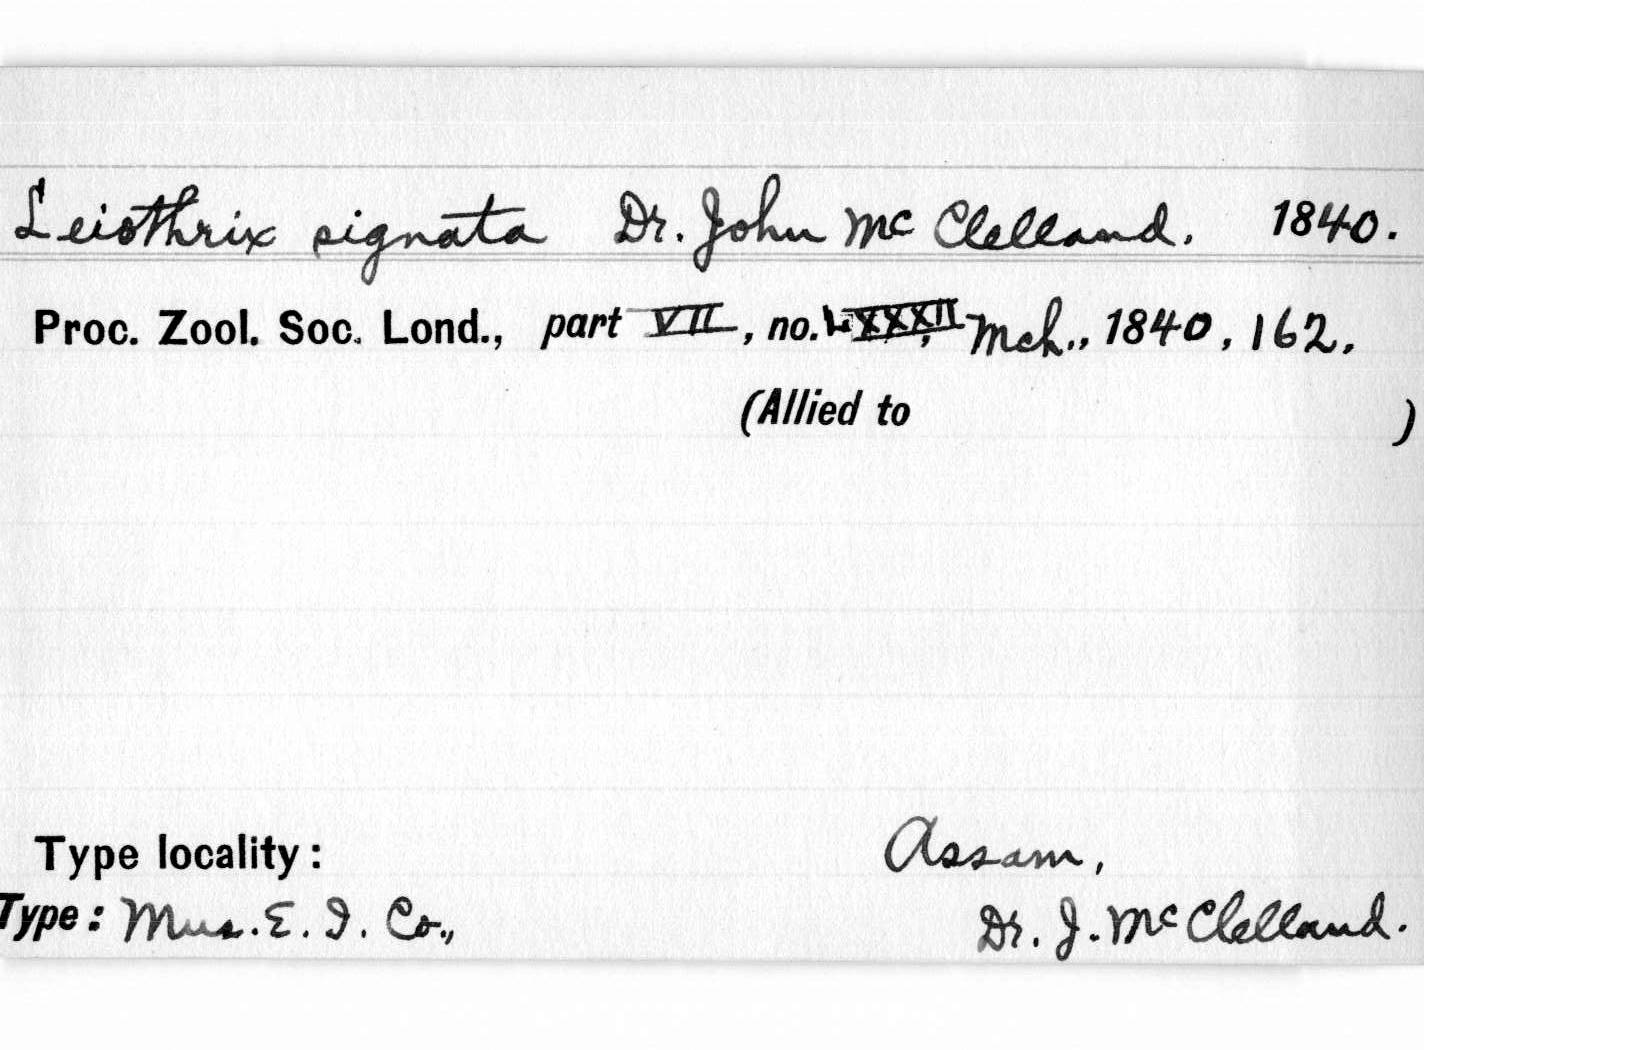 Leiothrix signata Dr. John McClelland. 1840.
Proc. Zool. Soc. Lond., part VII, no. LXXXII, Mch., 1840, 162.
(Allied to )
Type locality: Assam,
Type: Mus. E. I. Co., Dr. J. McClelland.